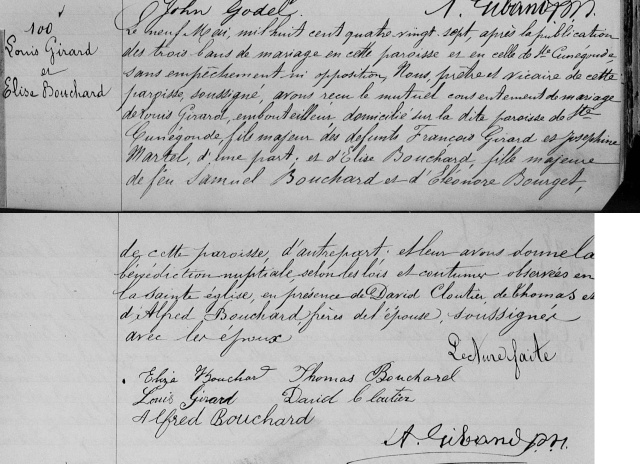 John Godel. A. Giband ptr.
100
Louis Girard
et
Elise Bouchard
Le neuf Mai, mil huit cent quatre vingt sept, après la publication
des trois bans de mariage en cette paroisse et en celle de Ste Cunégonde,
sans empêchement ni opposition, Nous, prêtre et vicaire de cette
paroisse, soussigné, avons reçu le mutuel consentement de mariage
de Louis Girard, embouteilleur, domicilié sur la dite paroisse de Ste
Cunégonde, fils majeur des defunts François Girard et Josephine
Martel, d'une part; et d'Elise Bouchard, fille majeure
de feu Samuel Bouchard et d'Eléonore Bourget,
de cette paroisse, d'autre part; et leur avons donné la
bénédiction nuptiale, selon les lois et coutumes observées en
la sainte église, en présence de David Cloutier, de Thomas et
d'Alfred Bouchard frères de l'épouse, soussignés
avec les époux
Lecture faite
Elize Bouchard Thomas Bouchard
Louis Girard David Cloutier
Alfred Bouchard
A. Giband ptr.